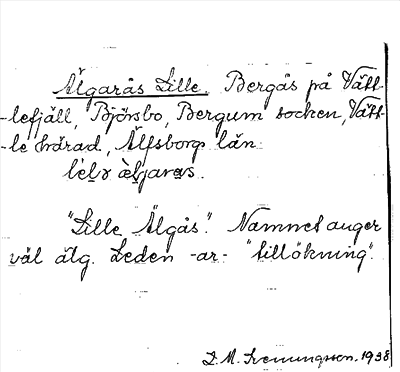 Älgarås Lille. Bergås på Vätt-
-lefjäll, Björsbo, Bergum socken, Vätt-
-le härad, Älfsborgs län
"Lille Älgås". Namnet anger
väl älg. Leden -ar- "tillökning".
I. M. Svenungsson. 1938